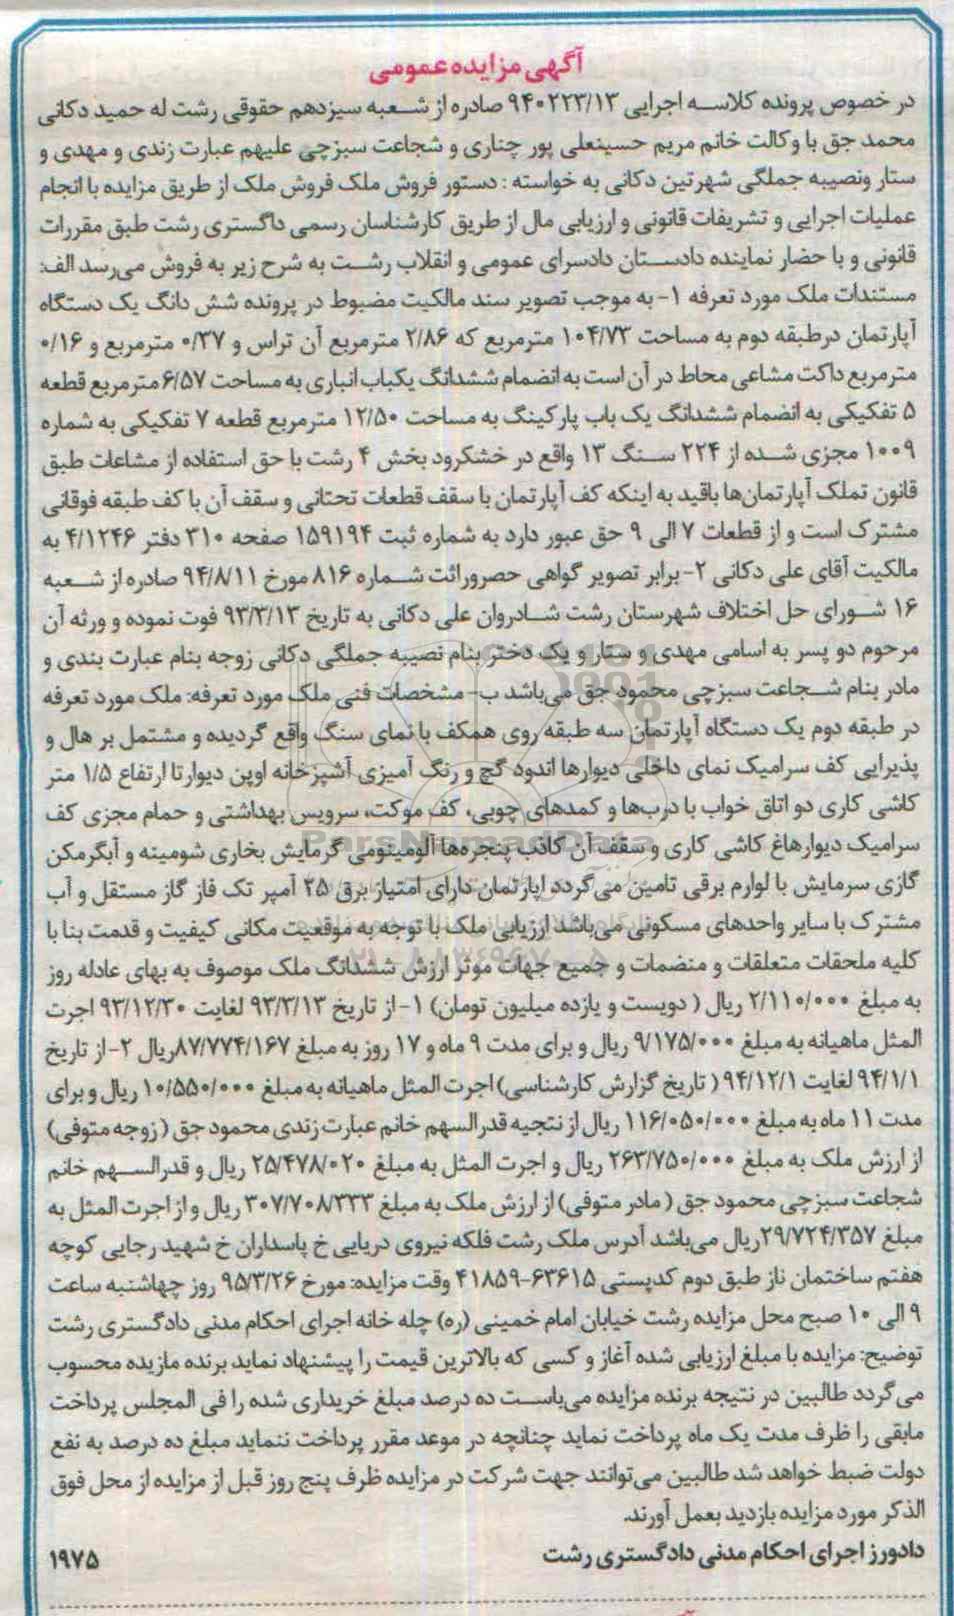 آگهی مزایده عمومی
در خصوص پرونده کلاسه اجرایی ۹۴۰۲۲۳/۱۳ صادره از شعبه سیزدهم حقوقی رشت له حمید دکانی
محمد جق با وکالت خانم مریم حسینعلی پور چناری و شجاعت سبزچی علیهم عبارت زندی و مهدی و
ستار ونصیبه جملگی شهرتین دکانی به خواسته : دستور فروش ملک فروش ملک از طریق مزایده با انجام
عملیات اجرایی و تشریفات قانونی و ارزیابی مال از طریق کارشناسان رسمی داگستری رشت طبق مقررات
قانونی و با حضار نماینده دادستان دادسرای عمومی و انقلاب رشت به شرح زیر به فروش می‌رسد الف:
مستندات ملک مورد تعرفه ۱- به موجب تصویر سند مالکیت مضبوط در پرونده شش دانگ یک دستگاه
آپارتمان درطبقه دوم به مساحت ۱۰۴/۷۳ مترمربع که ۲/۸۶ مترمربع آن تراس و ۰/۳۷ مترمربع و ۰/۱۶
مترمربع داکت مشاعی محاط در آن است به انضمام ششدانگ یکباب انباری به مساحت ۶/۵۷ مترمربع قطعه
۵ تفکیکی به انضمام ششدانگ یک باب پارکینگ به مساحت ۱۲/۵۰ مترمربع قطعه ۷ تفکیکی به شماره
۱۰۰۹ مجزی شده از ۲۲۴ سنگ ۱۳ واقع در خشکرود بخش ۴ رشت با حق استفاده از مشاعات طبق
قانون تملک آپارتمان‌ها باقید به اینکه کف آپارتمان با سقف قطعات تحتانی و سقف آن با کف طبقه فوقانی
مشترک است و از قطعات ۷ الی ۹ حق عبور دارد به شماره ثبت ۱۵۹۱۹۴ صفحه ۳۱۰ دفتر ۴/۱۲۴۶ به
مالکیت آقای علی دکانی ۲- برابر تصویر گواهی حصروراثت شماره ۸۱۶ مورخ ۹۴/۸/۱۱ صادره از شعبه
۱۶ شورای حل اختلاف شهرستان رشت شادروان علی دکانی به تاریخ ۹۳/۳/۱۳ فوت نموده و ورثه آن
مرحوم دو پسر به اسامی مهدی و ستار و یک دختر بنام نصیبه جملگی دکانی زوجه بنام عبارت بندی و
مادر بنام شجاعت سبزچی محمود جق می‌باشد ب- مشخصات فنی ملک مورد تعرفه: ملک مورد تعرفه
در طبقه دوم یک دستگاه آپارتمان سه طبقه روی همکف با نمای سنگ واقع گردیده و مشتمل بر هال و
پذیرایی کف سرامیک نمای داخلی دیوارها اندود گچ و رنگ آمیزی آشپزخانه اوپن دیوارتا ارتفاع ۱/۵ متر
کاشی کاری دو اتاق خواب با درب‌ها و کمدهای چوبی، کف موکت، سرویس بهداشتی و حمام مجزی کف
سرامیک دیوارهاغ کاشی کاری و سقف آن کاذب پنجره‌ها آلومینومی گرمایش بخاری شومینه و آبگرمکن
گازی سرمایش با لوارم برقی تامین می‌گردد اپارتمان دارای امتیاز برق ۲۵ آمپر تک فاز گاز مستقل و آب
مشترک با سایر واحدهای مسکونی می‌باشد ارزیابی ملک با توجه به موقعیت مکانی کیفیت و قدمت بنا با
کلیه ملحقات متعلقات و منضمات و جمیع جهات موثر ارزش ششدانگ ملک موصوف به بهای عادله روز
به مبلغ ۲/۱۱۰/۰۰۰ ریال ( دویست و یازده میلیون تومان) ۱- از تاریخ ۹۳/۳/۱۳ لغایت ۹۳/۱۲/۳۰ اجرت
المثل ماهیانه به مبلغ ۹/۱۷۵/۰۰۰ ریال و برای مدت ۹ ماه و ۱۷ روز به مبلغ ۸۷/۷۷۴/۱۶۷ریال ۲- از تاریخ
۹۴/۱/۱ لغایت ۹۴/۱۲/۱ ( تاریخ گزارش کارشناسی) اجرت المثل ماهیانه به مبلغ ۱۰/۵۵۰/۰۰۰ ریال و برای
مدت ۱۱ ماه به مبلغ ۱۱۶/۰۵۰/۰۰۰ ریال از نتجیه قدرالسهم خانم عبارت زندی محمود جق ( زوجه متوفی)
از ارزش ملک به مبلغ ۲۶۳/۷۵۰/۰۰۰ ریال و اجرت المثل به مبلغ ۲۵/۴۷۸/۰۲۰ ریال و قدرالسهم خانم
شجاعت سبزچی محمود جق ( مادر متوفی) از ارزش ملک به مبلغ ۳۰۷/۷۰۸/۳۳۳ ریال و از اجرت المثل به
مبلغ ۲۹/۷۲۴/۳۵۷ریال می‌باشد آدرس ملک رشت فلکه نیروی دریایی خ پاسداران خ شهید رجایی کوچه
هفتم ساختمان ناز طبق دوم کدپستی ۶۳۶۱۵-۴۱۸۵۹ وقت مزایده: مورخ ۹۵/۳/۲۶ روز چهاشنبه ساعت
۹ الی ۱۰ صبح محل مزایده رشت خیابان امام خمینی (ره) چله خانه اجرای احکام مدنی دادگستری رشت
توضیح: مزایده با مبلغ ارزیابی شده آغاز و کسی که بالاترین قیمت را پیشنهاد نماید برنده مازیده محسوب
می‌گردد طالبین در نتیجه برنده مزایده می‌باست ده درصد مبلغ خریداری شده را فی المجلس پرداخت
مابقی را ظرف مدت یک ماه پرداخت نماید چنانچه در موعد مقرر پرداخت ننماید مبلغ ده درصد به نفع
دولت ضبط خواهد شد طالبین می‌توانند جهت شرکت در مزایده ظرف پنج روز قبل از مزایده از محل فوق
الذکر مورد مزایده بازدید بعمل آورند.
دادورز اجرای احکام مدنی دادگستری رشت ۱۹۷۵
ParsNamadData